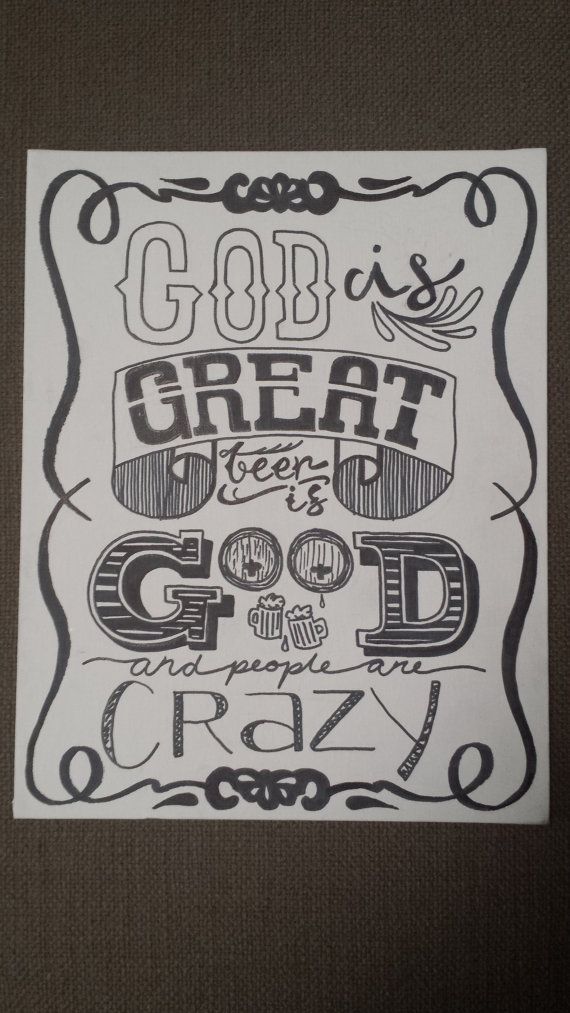 GOD is
GREAT
beer
is
GOOD
and people are
CRaZY